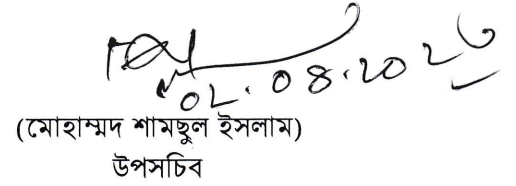 02.08.202৬
(মোহাম্মদ শামছুল ইসলাম)
উপসচিব